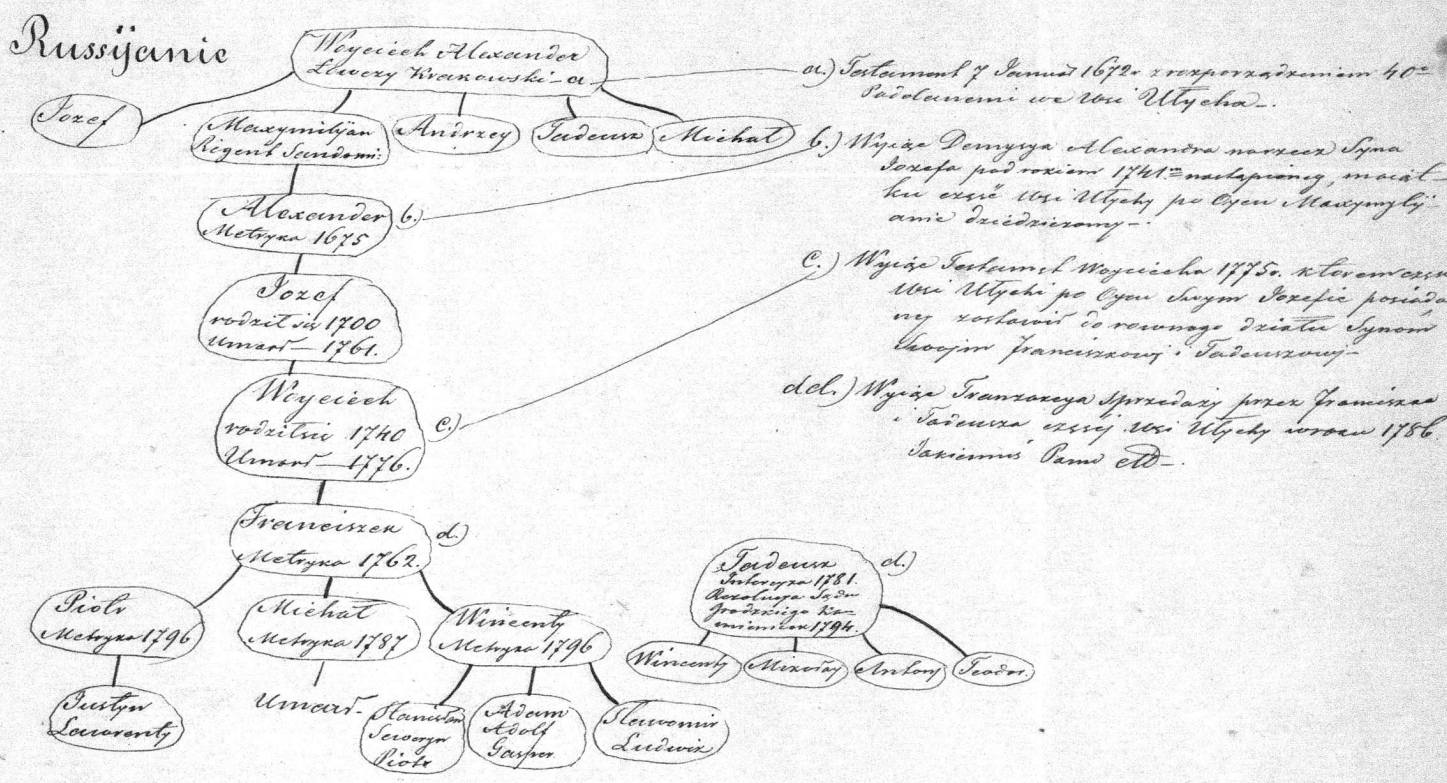 Russÿanie
Woyciech Alexander
Łowczy Krakowski a
Jozef
Maxymilÿan
Rigent Sandomi:
Andrzey
Tadeusz
Michał
Alexander
Metryka 1675
b.)
Jozef
rodził się 1700
Umarł — 1761.
Woyciech
rodził sie 1740
Umarł — 1776.
c.)
Franciszek
Metryka 1762.
d.)
Piotr
Metryka 1796
Michał
Metryka 1787
Wincenty
Metryka 1796
Justyn
Lawrenty
Umarł
Stanisław
Seweryn
Piotr
Adam
Adolf
Gasper
Sławomir
Ludwik
Tadeusz
Intercyza 1781.
Rezolucya Sądu
Grodzkiego Ka-
mieniec 1794.
d.)
Wincenty
Mikołay
Antony
Teodor.
a.) Testament 7 1672 z rozporządzeniem 40
Poddanemi we Wsi Utycha.
b.) Wyciąg Alexandra narzecz Syna
Jozefa pod rokiem 1741 nastąpioney, maiąt-
ku część Wsi Utychy po Oycu Maxymylÿ-
anie dziedziczony
c.) Wyciąg Testament Woyciecha 1775 r. którem
Wsi Utychi po Oycu Swym Jozefie
zostawił do rownego działu Synom
Swojm Franciszkowj i Tadeuszowj
dd.) Wyciąg Tranzakcya Sprzedaży przez Franciszka
i Tadeusza części Wsi Utychy w roku 1786
Jakiemuś Panu